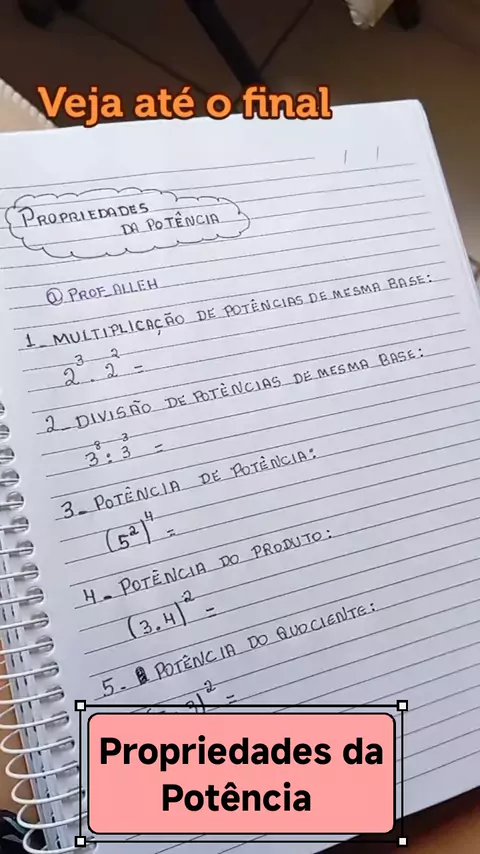 Veja até o final
PROPRIEDADES
DA POTÊNCIA
@PROF_ALLEH
1_ MULTIPLICAÇÃO DE POTÊNCIAS DE MESMA BASE:
2³ . 2² =
2_ DIVISÃO DE POTÊNCIAS DE MESMA BASE:
3⁸ : 3³ =
3_ POTÊNCIA DE POTÊNCIA:
(5²)⁴ =
4_ POTÊNCIA DO PRODUTO:
(3.4)² =
5_ POTÊNCIA DO QUOCIENTE:
)² =
Propriedades da
Potência